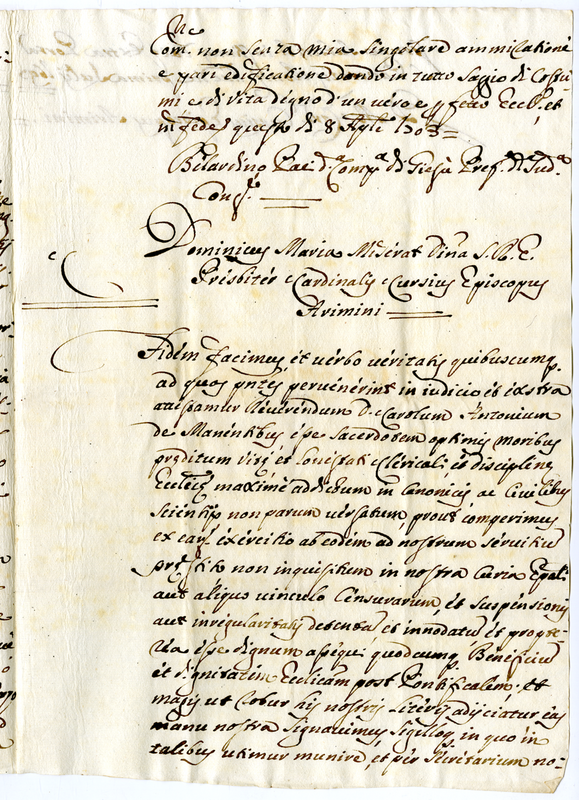 Com. non senza mia singolare ammiratione
e pari edificatione dando in tutto saggio di Costu-
mi e di vita degno d'un vero e pfetto Eccl.º, et
in fede questo di 8 Aple 1703=
Belardino Pac d. Comp.ª di Giesù Pref. di Stud.
Cong.
Dominicus Maria Miserat Diña S. R. E.
Presbiter Cardinalis Cursius Episcopus
Arimini
Fidem facimus et verbo veritatis quibuscumq.
ad quos pntes pervenerint in iudicio et extra
attestamur Reverendum D. Carolum Antonium
de Manentibus esse sacerdotem optimis moribus
preditum vitę et honestati Clericali, et disciplinę
Eccleticę maximè addictum in Canonicis ac Civilibus
scientijs non parum versatum, prout comperimus
ex earũ exercitio ab eodem ad nostrum servitiũ
non inquisitum in nostra Curia Epali
aut aliquo vinculo Censurarum, et suspensionis
aut irregularitatis detentũ et innodatũ et propte-
rea esse dignum assequi quodcumq. Beneficiũ
et dignitatem Ecclicam post Pontificalem. Et
magis ut robur his nostris literis adijciatur eas
manu nostra signavimus, sigilloq. in quo in
talibus utimur munire, et per Secretarium no=